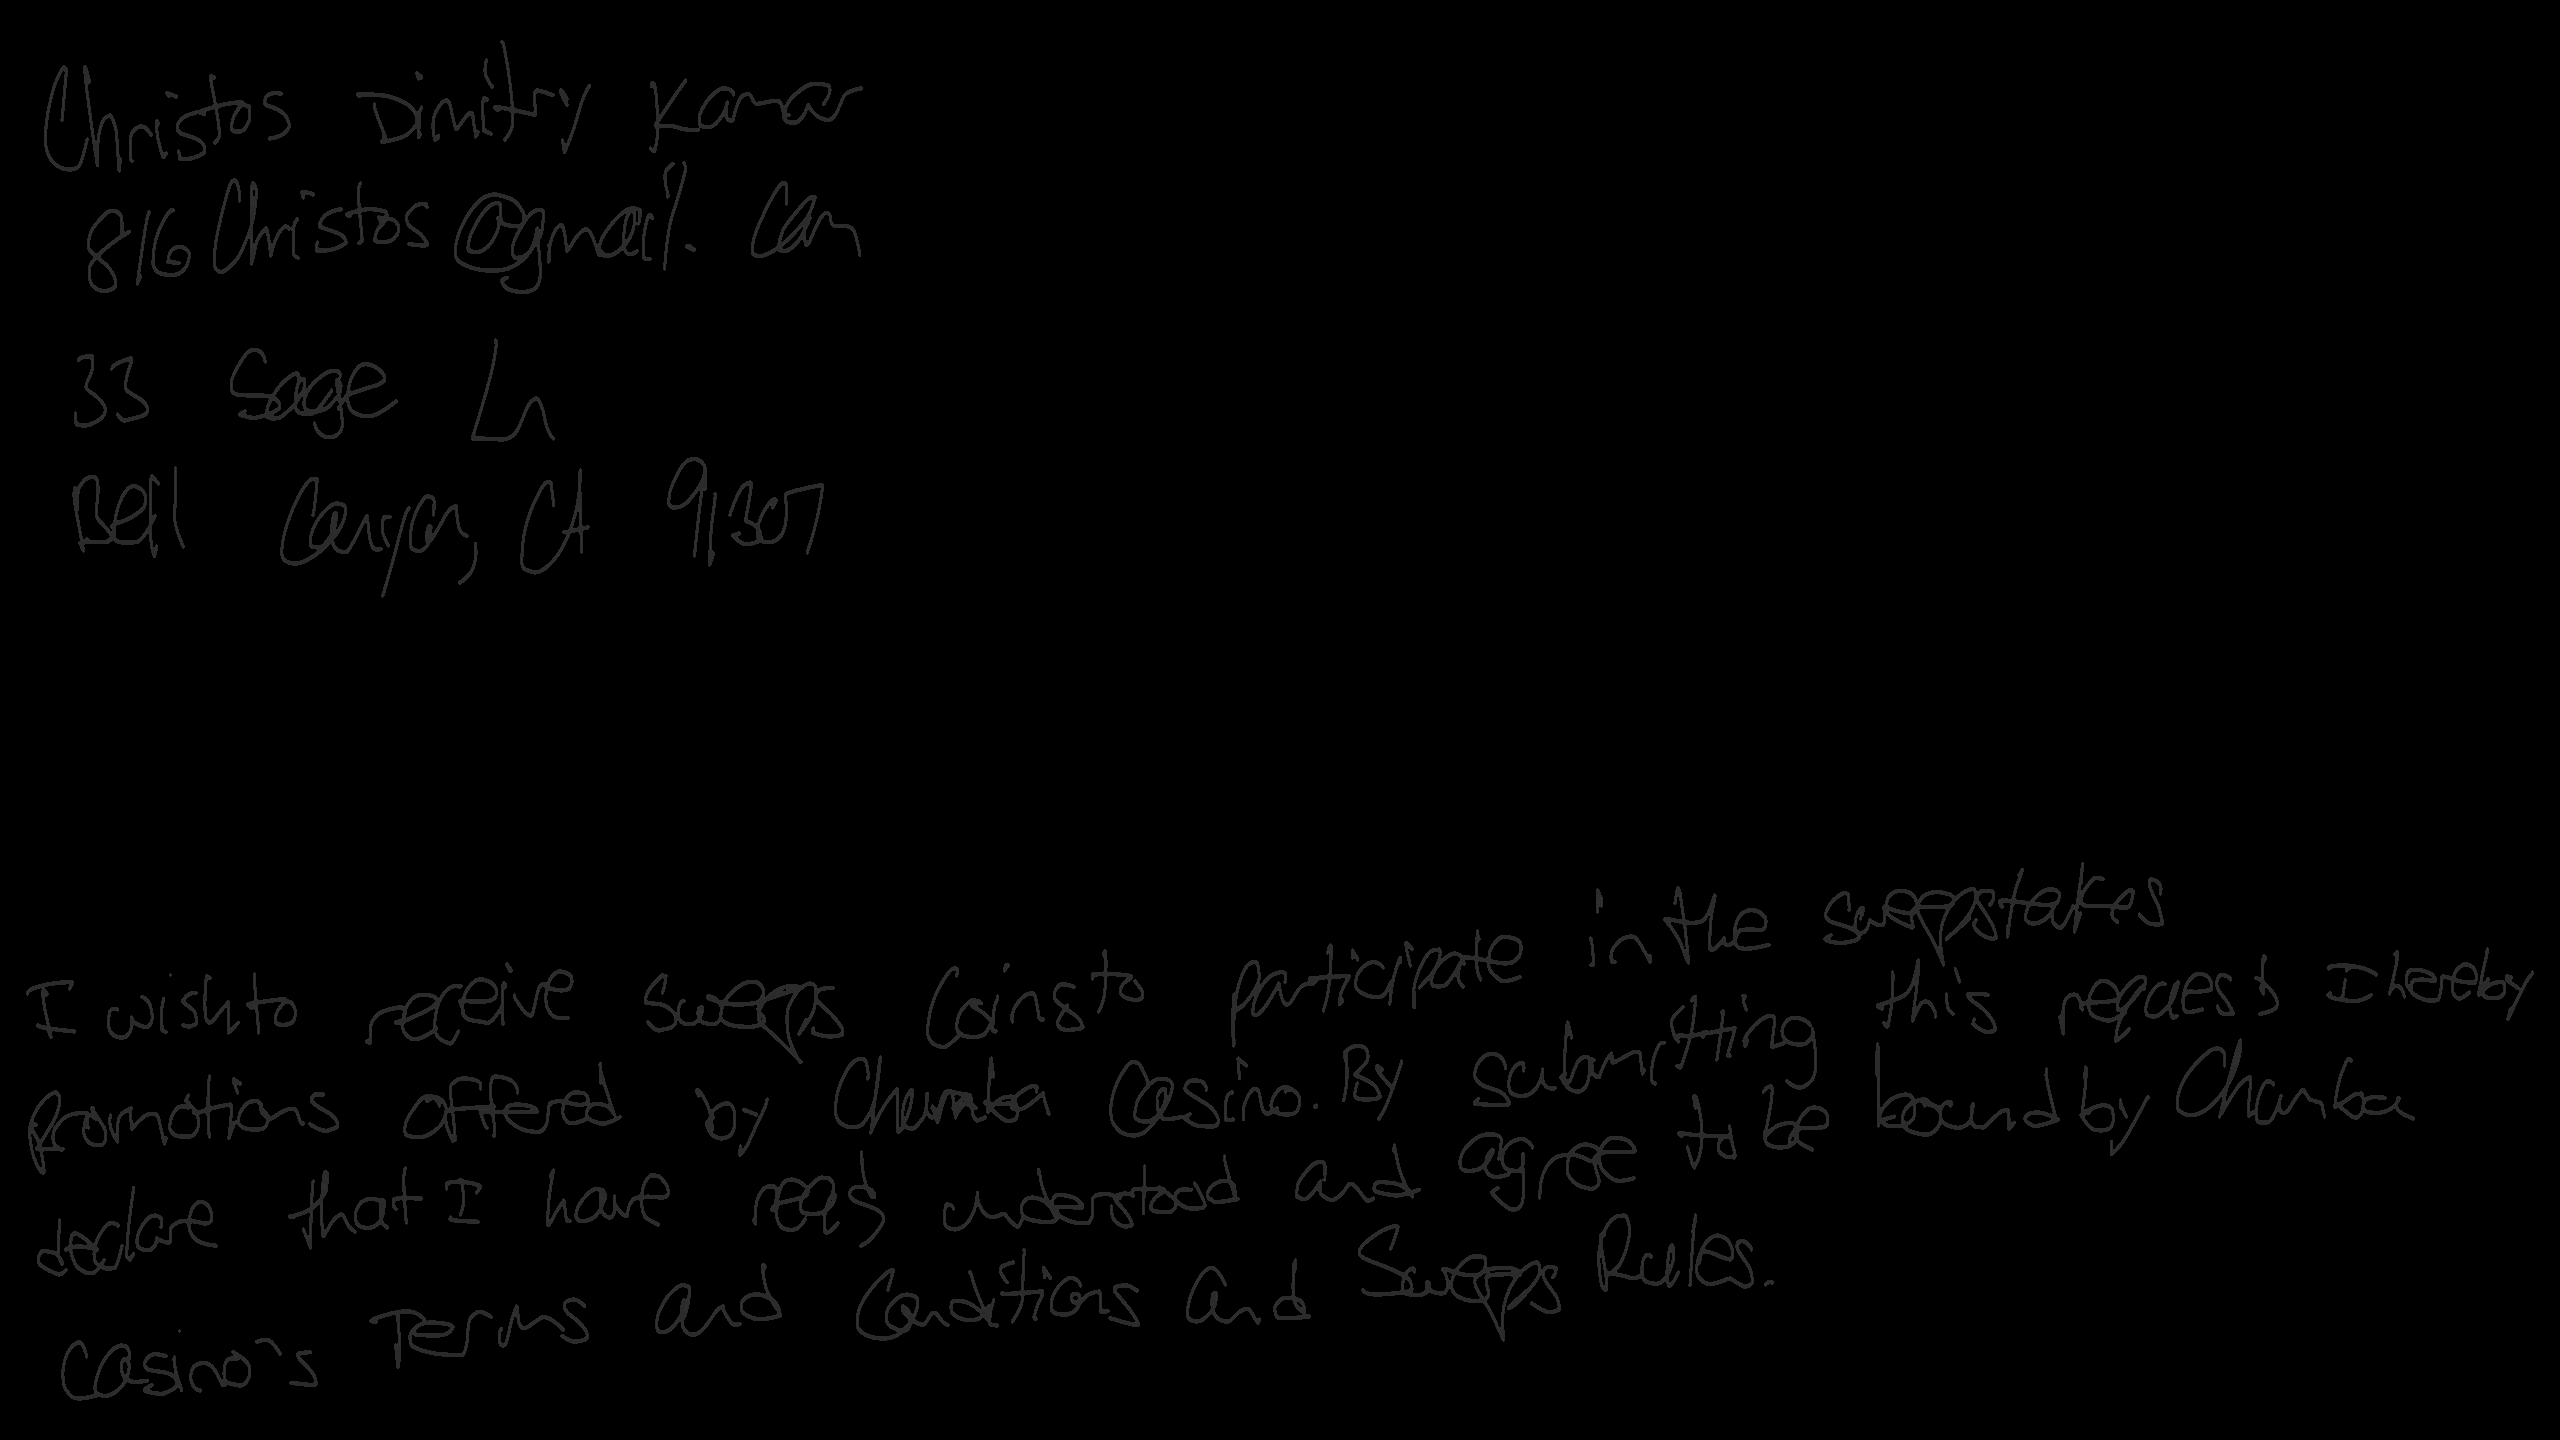 Christos Dimitry Kamar
816Christos@gmail.com
33 Sage Ln
Bell Canyon, CA 91307
I wish to receive Sweeps Coins to participate in the sweepstakes
promotions offered by Chumba Casino. By submitting this request I hereby
declare that I have read understood and agree to be bound by Chumba
Casino's Terms and Conditions and Sweeps Rules.